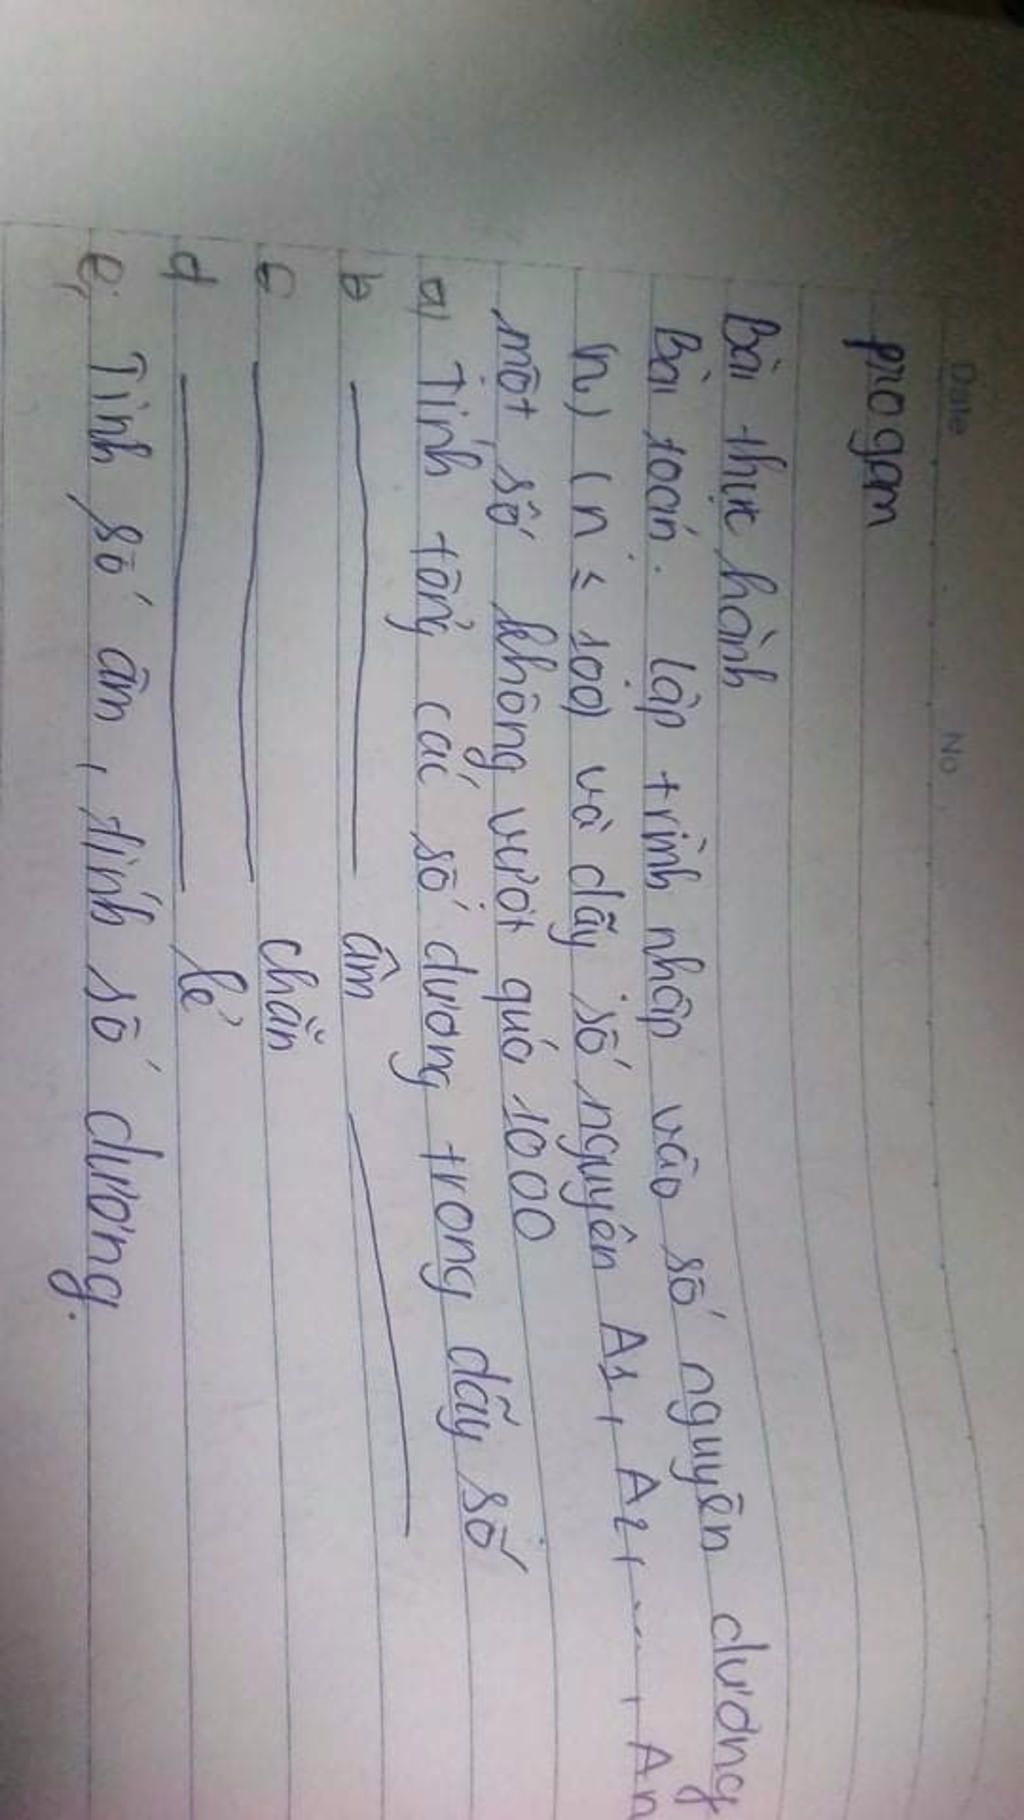 Date No
progam
Bài thực hành
Bài toán. lập trình nhập vào số nguyên dương
(n) (n ≤ 100) và dãy số nguyên A1, A2, ..., An
một số không vượt quá 1000
a, Tính tổng các số dương trong dãy số
b âm
c chẵn
d lẻ
e, Tính số âm, tính số dương.